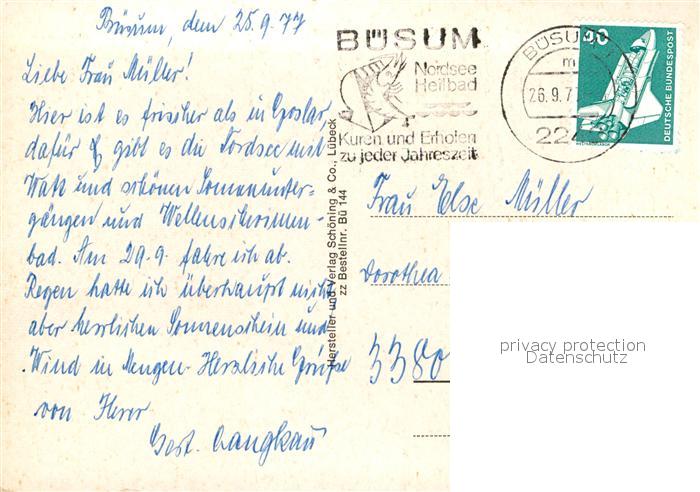 Büsum, dem 25.9.77
Liebe Frau Müller!
Hier ist es frischer als in Goslar,
dafür gibt es die Nordsee mit
Watt und schönen Sonnenunter-
gängen und Wellenschwimm-
bad. Am 29.9. fahre ich ab.
Regen hatte ich überhaupt nicht
aber herrlichen Sonnenschein und
Wind in Mengen. Herzliche Grüße
von Ihrer
Gert.
Hersteller und Verlag Schöning & Co., Lübeck
zz Bestellnr. Bü 144
BÜSUM
Nordsee
Heilbad
Kuren und Erholen
zu jeder Jahreszeit
BÜSUM
m
26.9.7
224
90
DEUTSCHE BUNDESPOST
Frau Else Müller
Dorothea
3380
privacy protection
Datenschutz